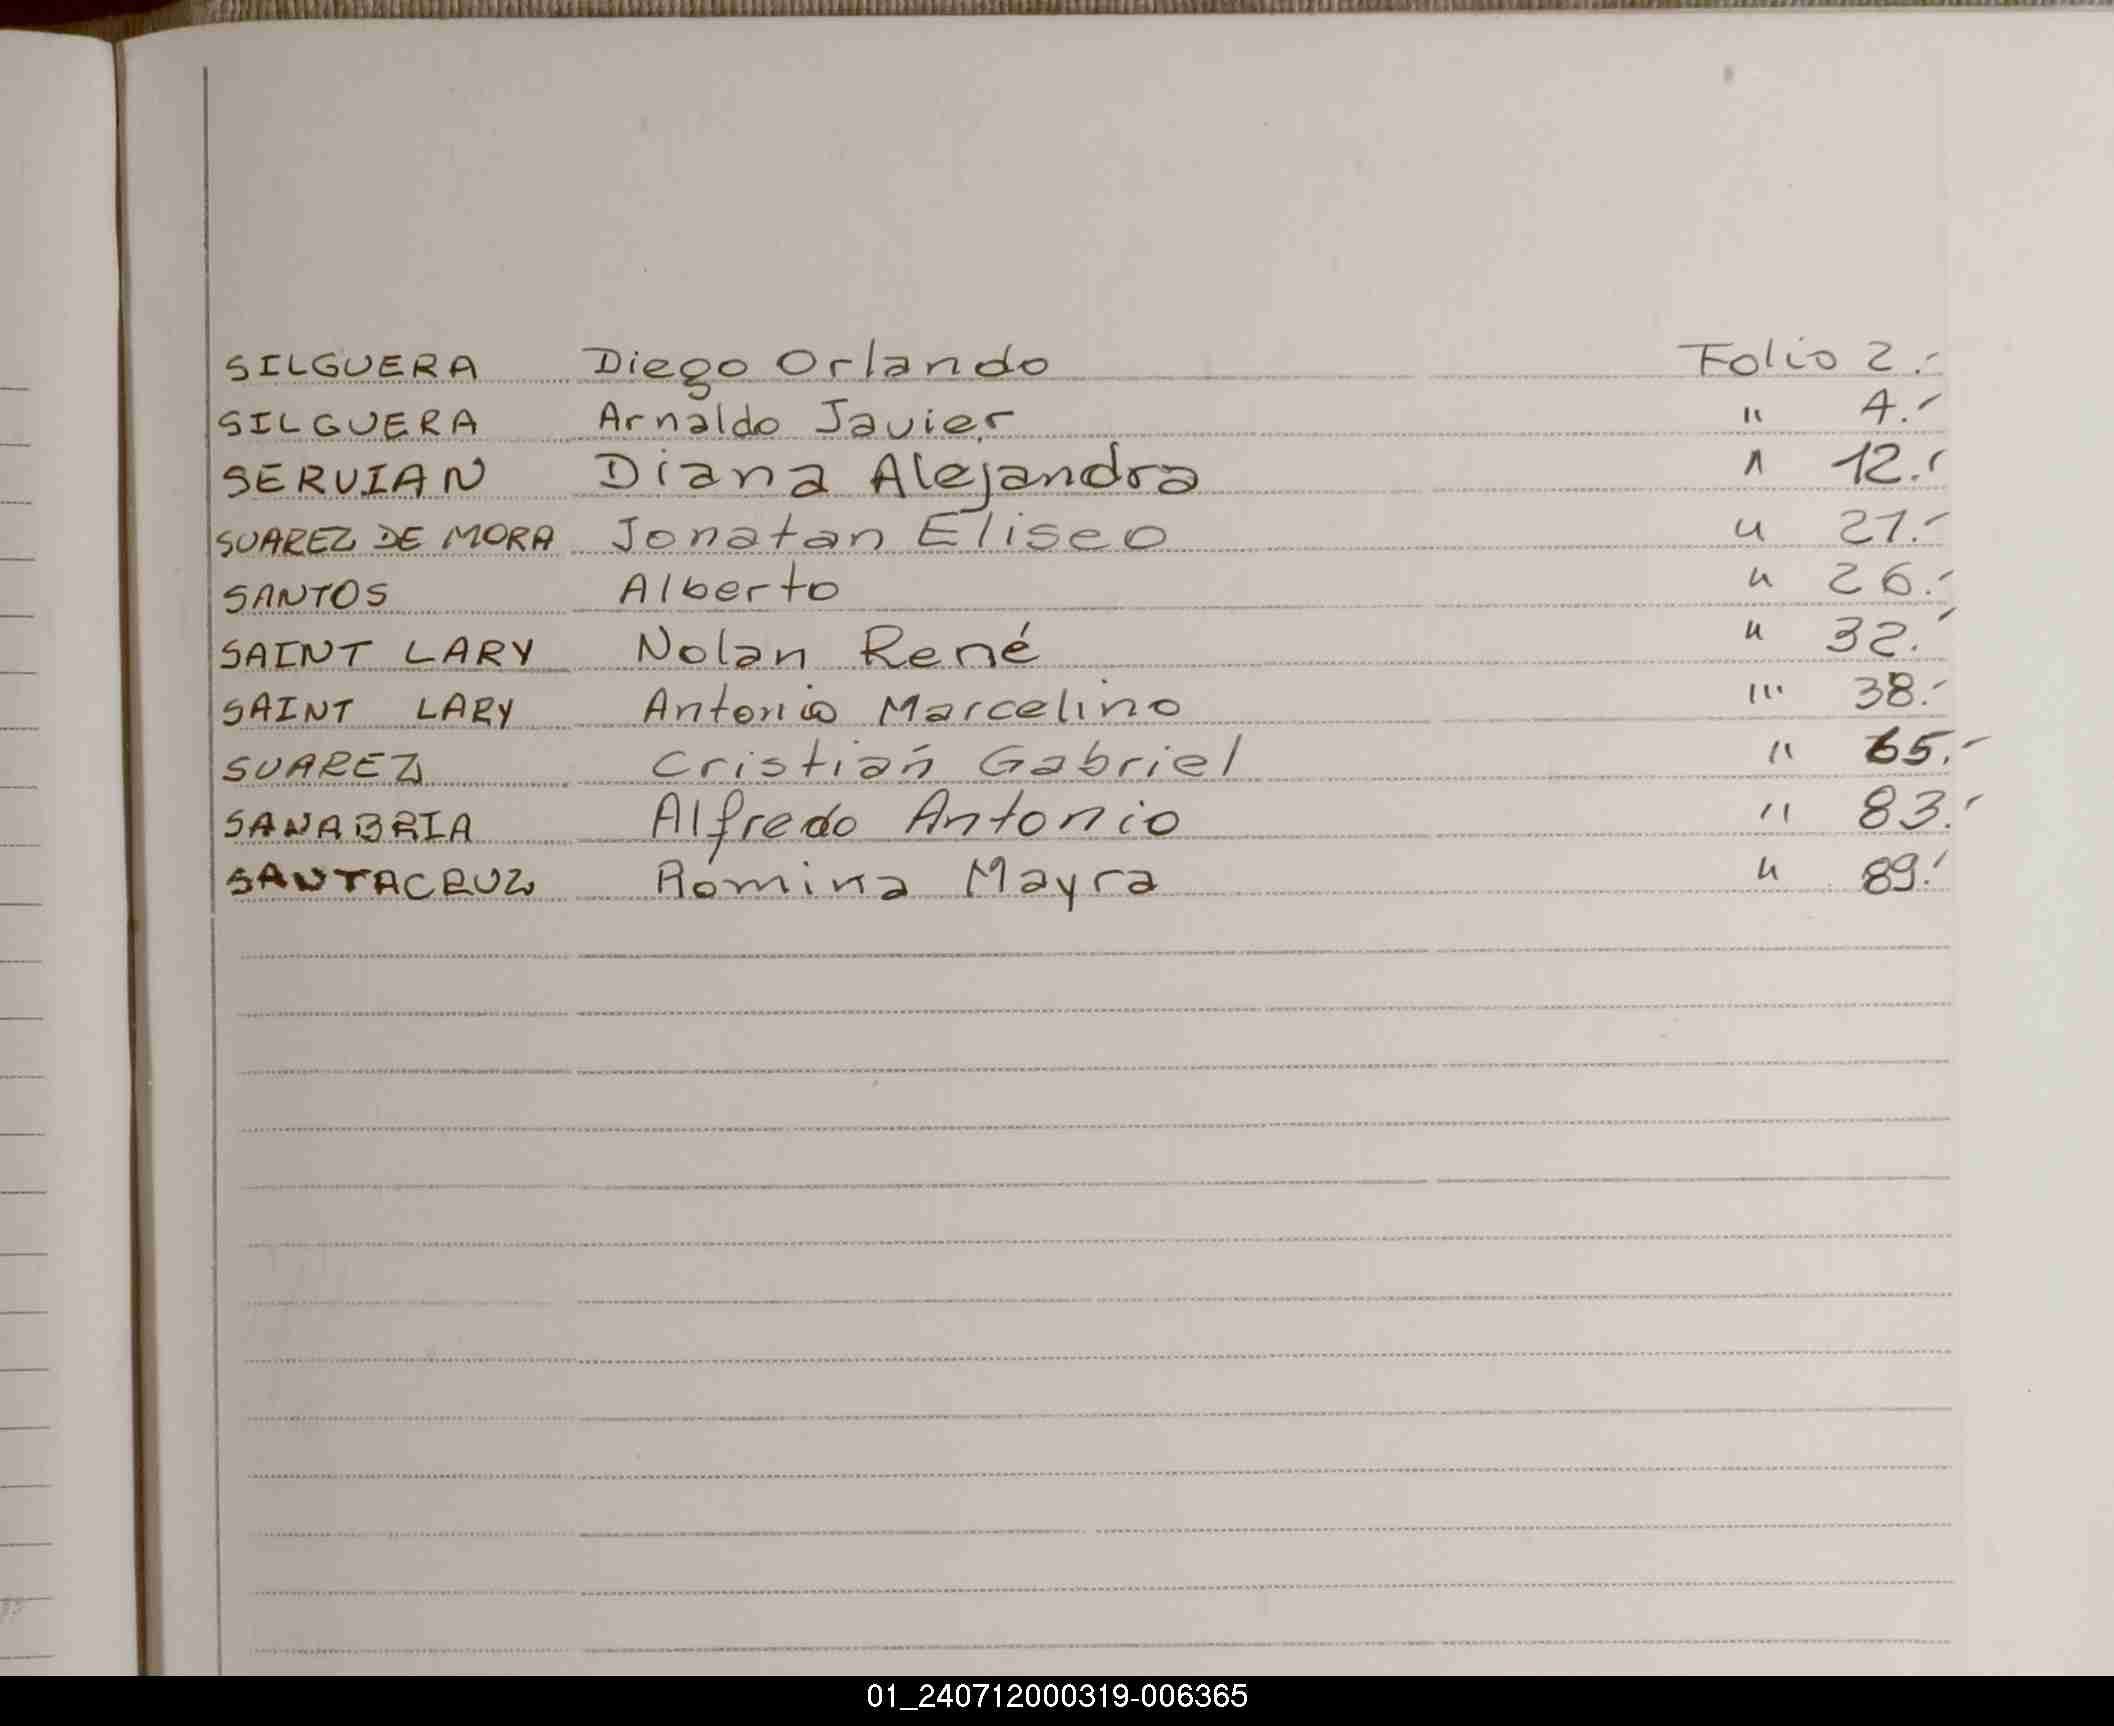 SILGUERA Diego Orlando Folio 2.-
SILGUERA Arnaldo Javier " 4.-
SERVIAN Diana Alejandra " 12.-
SUAREZ DE MORA Jonatan Eliseo " 21.-
SANTOS Alberto " 26.-
SAINT LARY Nolan René " 32.-
SAINT LARY Antonio Marcelino " 38.-
SUAREZ Cristian Gabriel " 65.-
SANABRIA Alfredo Antonio " 83.-
SANTACRUZ Romina Mayra " 89.-
01_240712000319-006365